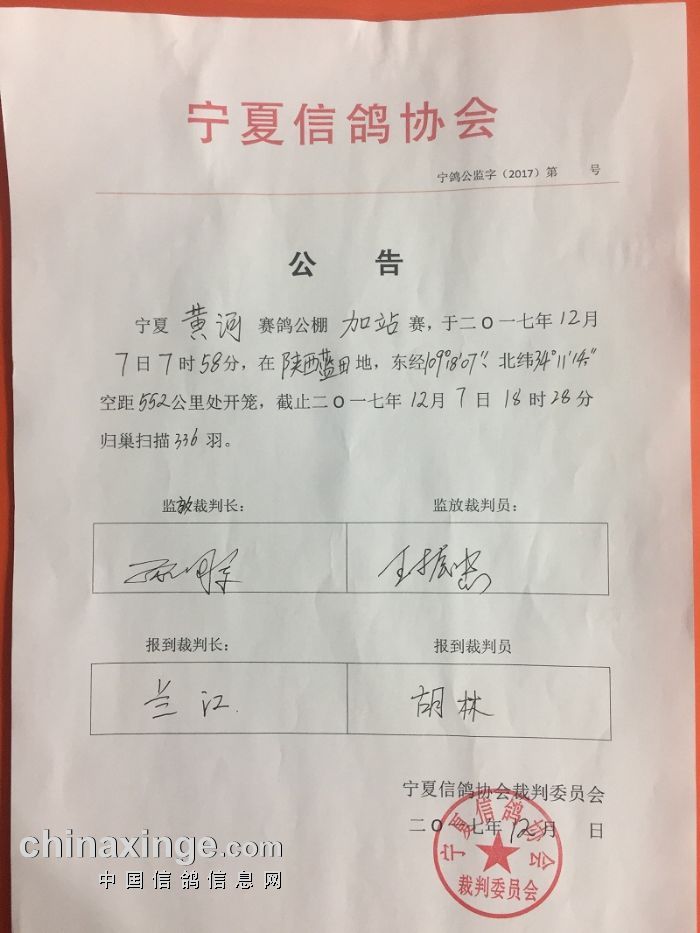 宁夏信鸽协会
宁鸽公监字（2017）第 号
公 告
宁夏 黄河 赛鸽公棚 加站 赛，于二O一七年 12 月
7 日 7 时 58 分，在 陕西蓝田 地，东经109°18′07″、北纬34°11′14″
空距 552 公里处开笼，截止二O一七年 12 月 7 日 18 时 28 分
归巢扫描 336 羽。
监放裁判长： 监放裁判员：
王振忠
报到裁判长： 报到裁判员
兰江 胡林
宁夏信鸽协会裁判委员会
二O一七年 12 月 日
宁夏信鸽协会
裁判委员会
chinaxinge.com
中国信鸽信息网